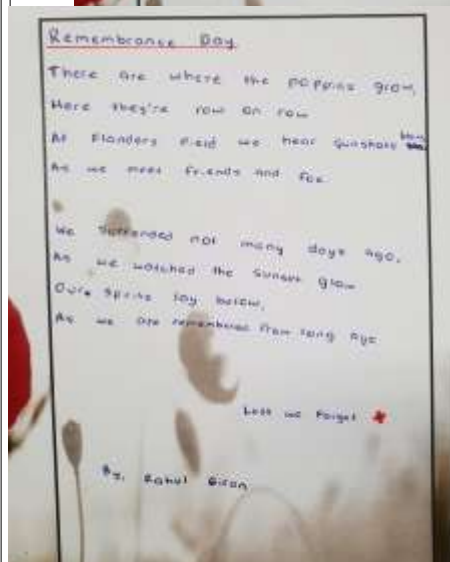 Remembrance Day
There are where the poppins grow,
Here they're row on row
At Flanders Field we hear gunshots
As we meet friends and foe
We surrended not many days ago,
As we watched the sunset glow
Ours sprits lay below,
As we are remembered from long ago
Lest we Forget
By, Rahul